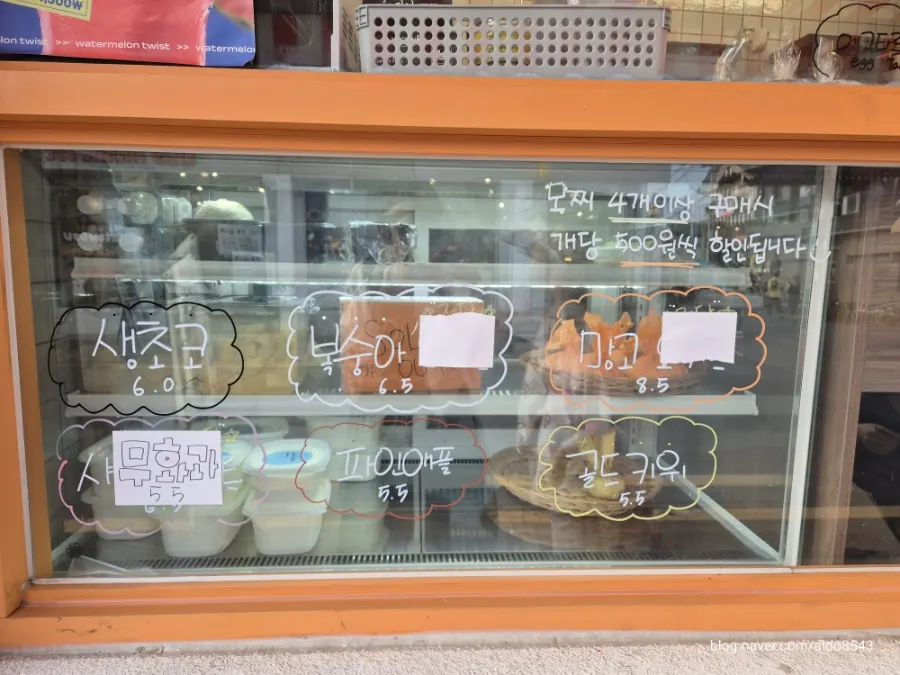 ,500₩
melon twist >> watermelon twist >> watermelon
egg Ta
모찌 4개이상 구매시
개당 500원씩 할인됩니다
생초코
6.0
복숭아
6.5
망고
8.5
무화과
5.5
6.5
파인애플
5.5
골드키위
5.5
blog.naver.com/aldo8543